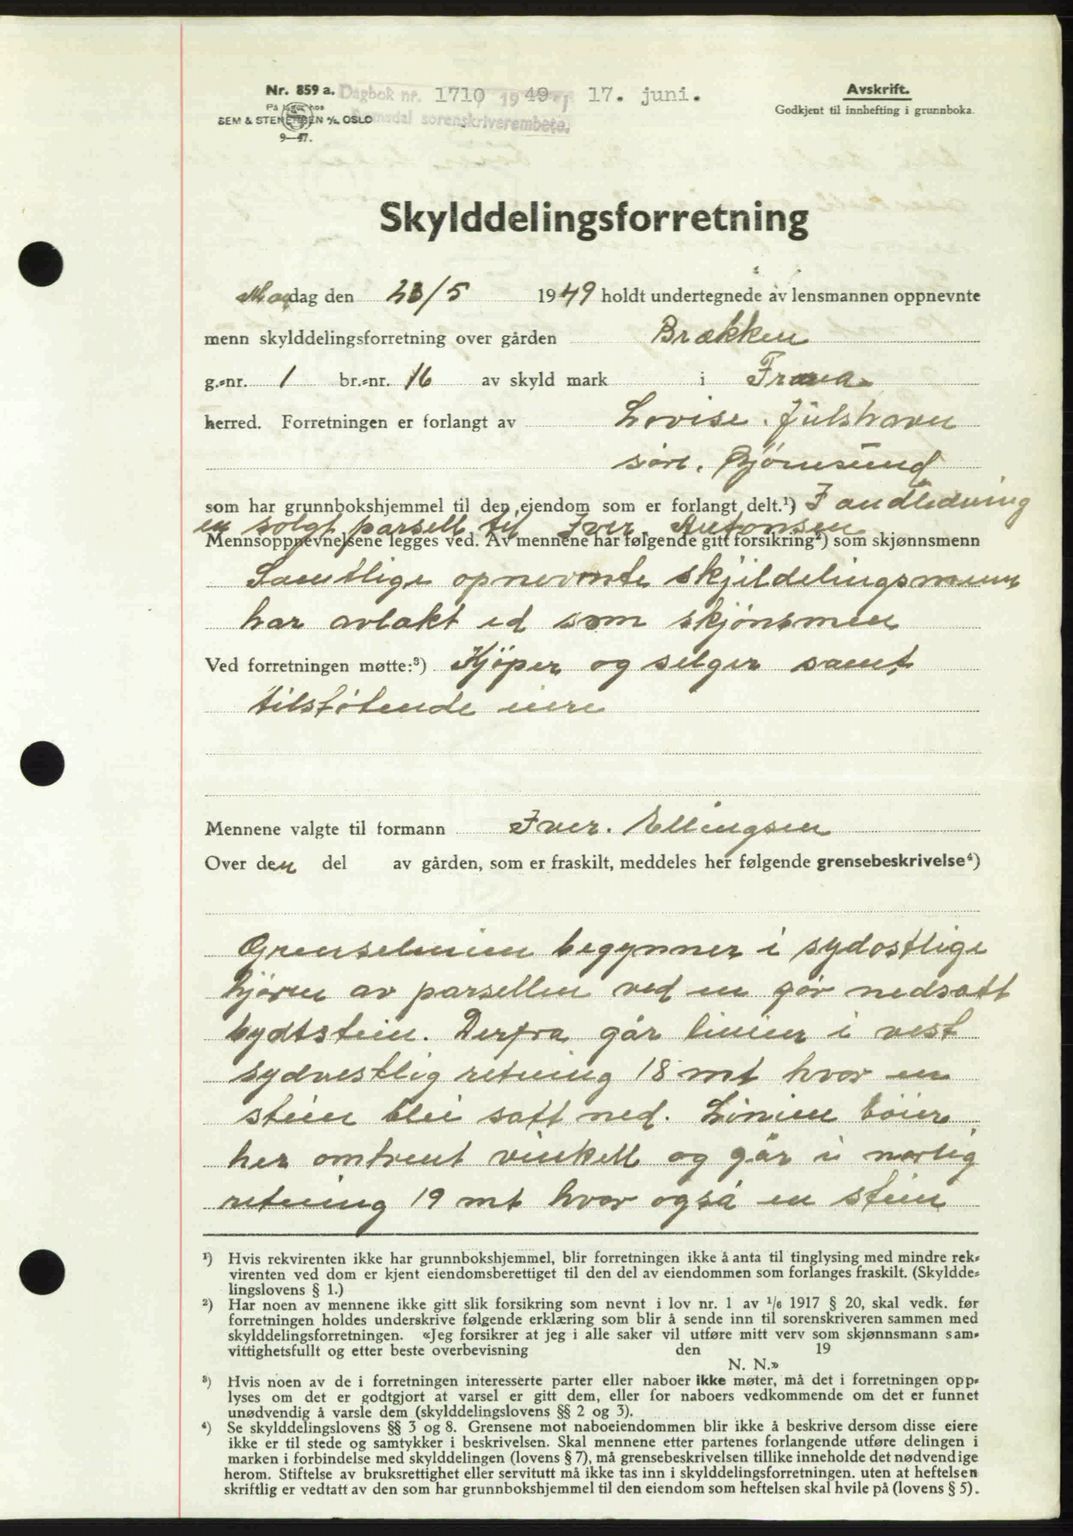 Nr. 859 a.
På lager hos
SEM & STENERSEN A/S, OSLO
9—47.
Dagbok nr. 1710 19 49 17. juni.
Romsdal sorenskriverembete.
Avskrift.
Godkjent til innhefting i grunnboka.
Skylddelingsforretning
Mandag den 23/5 1949 holdt undertegnede av lensmannen oppnevnte
menn skylddelingsforretning over gården Brækken
g.-nr. 1 br.-nr. 16 av skyld mark i Fræna
herred. Forretningen er forlangt av Lovise Julshavn
søre. Bjørnsund
som har grunnbokshjemmel til den ejendom som er forlangt delt.¹) I andledning
en solgt parsell til Iver Antonsen
Mennsoppnevnelsene legges ved. Av mennene har følgende gitt forsikring²) som skjønnsmenn
Samtlige opnevnte skjildelingsmenn
har avlakt ed som skjønsmen
Ved forretningen møtte:³) Kjøper og selger samt
tilstøtende eiere
Mennene valgte til formann Iver. Ellingsen
Over den del av gården, som er fraskilt, meddeles her følgende grensebeskrivelse⁴)
Grenselinien begynner i sydostlige
hjørne av parsellen ved en gør nedsatt
bydtstein. Derfra går linien i vest
sydvestlig retning 18 mt hvor en
stein blei satt ned. Linien bøier
her omtrent vinkell og går i norlig
retning 19 mt hvor også en stein
¹) Hvis rekvirenten ikke har grunnbokshjemmel, blir forretningen ikke å anta til tinglysing med mindre rek-
virenten ved dom er kjent eiendomsberettiget til den del av eiendommen som forlanges fraskilt. (Skyldde-
lingslovens § 1.)
²) Har noen av mennene ikke gitt slik forsikring som nevnt i lov nr. 1 av ¹/₆ 1917 § 20, skal vedk. før
forretningen holdes underskrive følgende erklæring som blir å sende inn til sorenskriveren sammen med
skylddelingsforretningen. «Jeg forsikrer at jeg i alle saker vil utføre mitt verv som skjønnsmann sam-
vittighetsfullt og etter beste overbevisning den 19
N. N.»
³) Hvis noen av de i forretningen interesserte parter eller naboer ikke møter, må det i forretningen opp-
lyses om det er godtgjort at varsel er gitt dem, eller for naboers vedkommende om det er funnet
unødvendig å varsle dem (skylddelingslovens §§ 2 og 3).
⁴) Se skylddelingslovens §§ 3 og 8. Grensene mot naboeiendommen blir ikke å beskrive dersom disse eiere
ikke er til stede og samtykker i beskrivelsen. Skal mennene etter partenes forlangende utføre delingen i
marken i forbindelse med skylddelingen (lovens § 7), må grensebeskrivelsen tillike inneholde det nødvendige
herom. Stiftelse av bruksrettighet eller servitutt må ikke tas inn i skylddelingsforretningen. uten at heftelsen
skriftlig er vedtatt av den som har grunnbokshjemmel til den eiendom som heftelsen skal hvile på (lovens § 5).